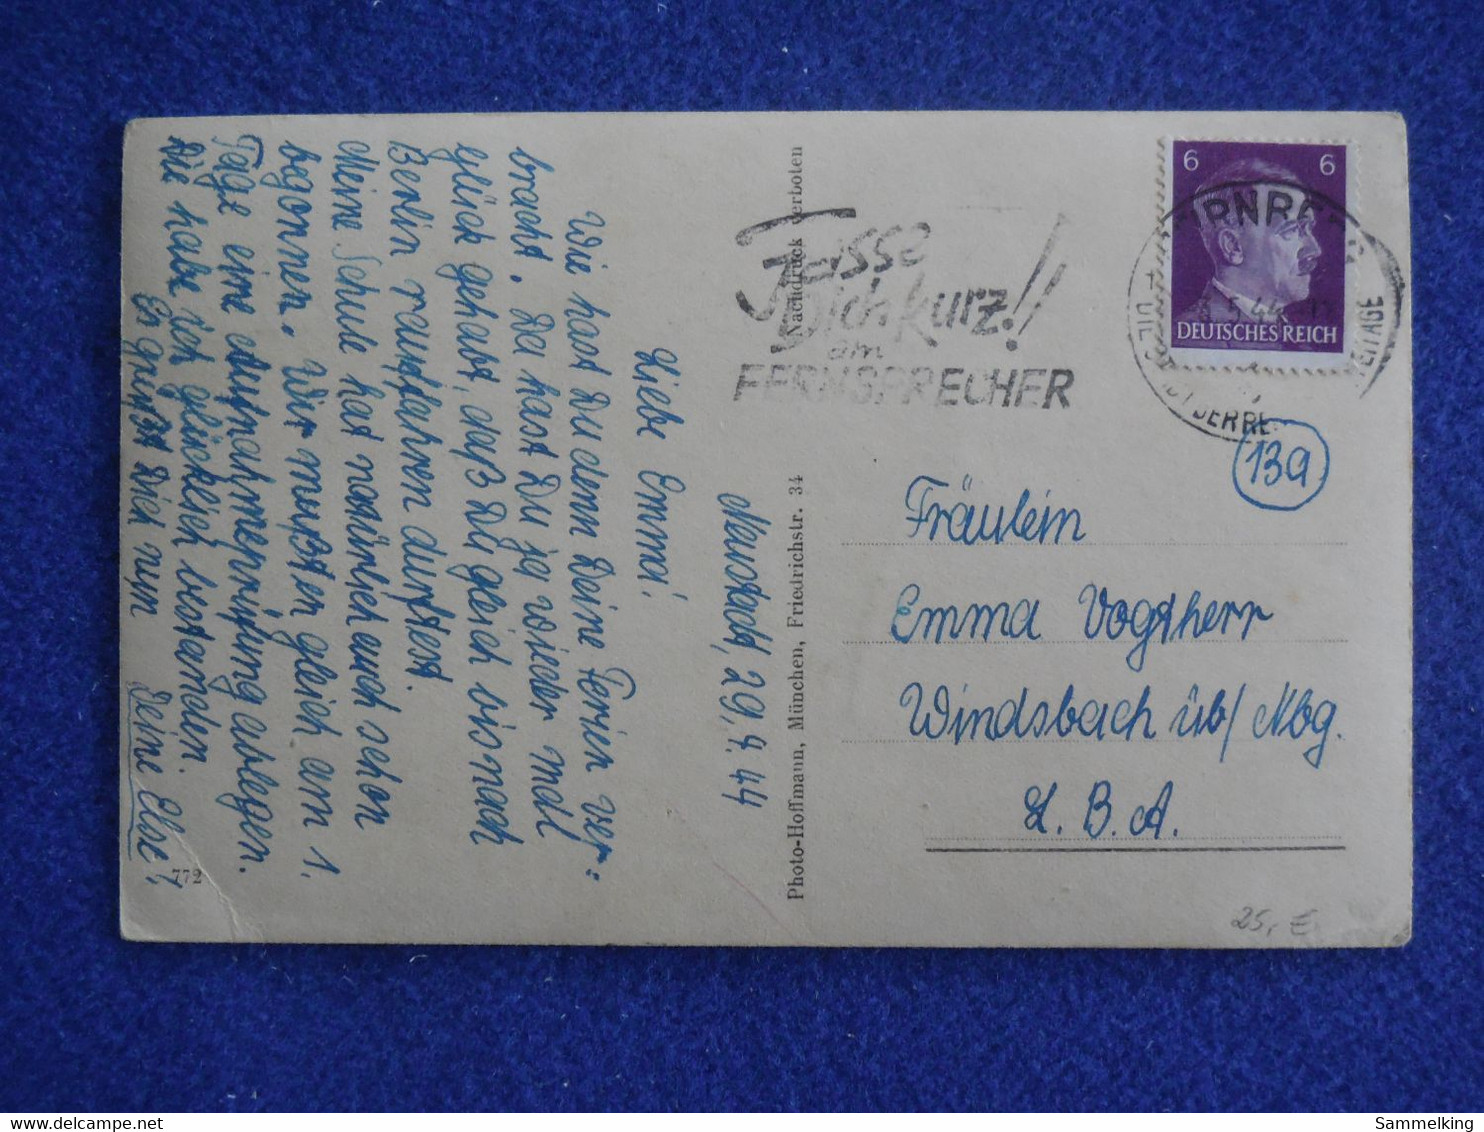 Neustadt, 29.4.44
Liebe Emma!
Wie hast Du denn Deine Ferien ver-
bracht. Da hast Du ja wieder mal
Glück gehabt, daß Du gleich bis nach
Berlin rauffahren durftest.
Meine Schule hat natürlich auch schon
begonnen. Wir mußten gleich am 1.
Tage eine Aufnahmeprüfung ablegen.
Die habe ich glücklich bestanden.
Es grüßt Dich nun
Deine Else!
772
Photo-Hoffmann, München, Friedrichstr. 34
Nachdruck verboten
Fasse
Dich kurz!!
am
FERNSPRECHER
6 6
DEUTSCHES REICH
13a
Fräulein
Emma Vogtherr
Windsbach üb/ Nbg.
L. B. A.
25,- E
Sammelking